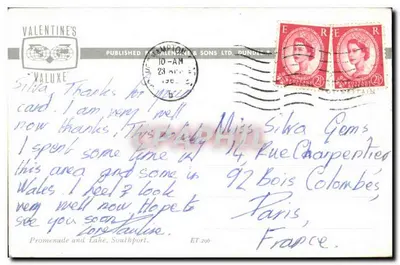 VALENTINE'S
"VALUXE"
PUBLISHED BY VALENTINE & SONS LTD. DUNDEE
10-AM
23
196
E R
E R
2½D
2½D
Silva, Thanks for your
card. I am very well
now thanks. This
I spent some time in
this area and some in
Wales. I feel & look
very well now. Hope to
see you soon,
Love Pauline.
Miss Silva Gems
14, Rue Charpentier
92 Bois Colombes,
Paris,
France.
Promenade and Lake, Southport.
ET